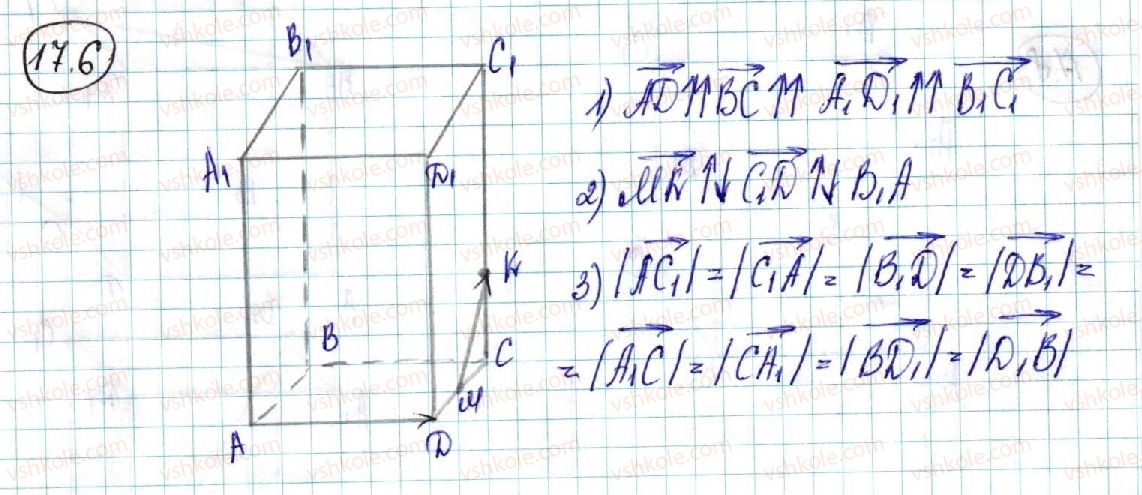 17.6
B₁ C₁
A₁ D₁
K
B C
M
A D
1) A͞D⃗ ↑↑ B͞C⃗ ↑↑ A₁D₁⃗ ↑↑ B₁C₁⃗
2) MK⃗ ↑↓ C₁D⃗ ↑↓ B₁A
3) |AC₁⃗| = |C₁A⃗| = |B₁D⃗| = |DB₁⃗| =
= |A₁C⃗| = |CA₁⃗| = |BD₁⃗| = |D₁B⃗|
vshkole.com